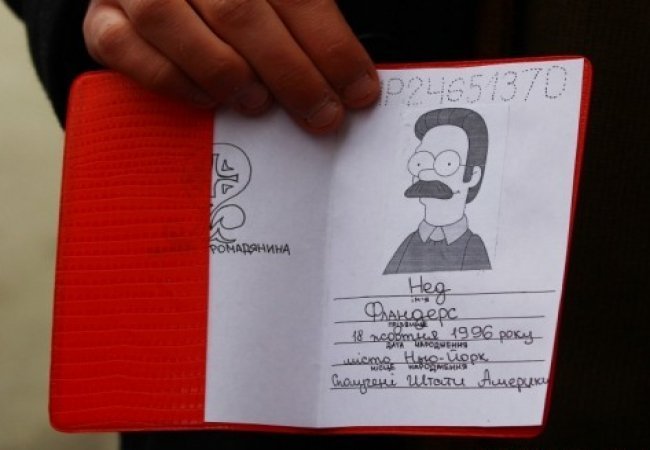 P24651370
РОМАДЯНИНА
Нед
ІМ'Я
Фландерс
ПРІЗВИЩЕ
18 жовтня 1996 року
ДАТА НАРОДЖЕННЯ
місто Нью-Йорк
МІСЦЕ НАРОДЖЕННЯ
Сполучені Штати Америки